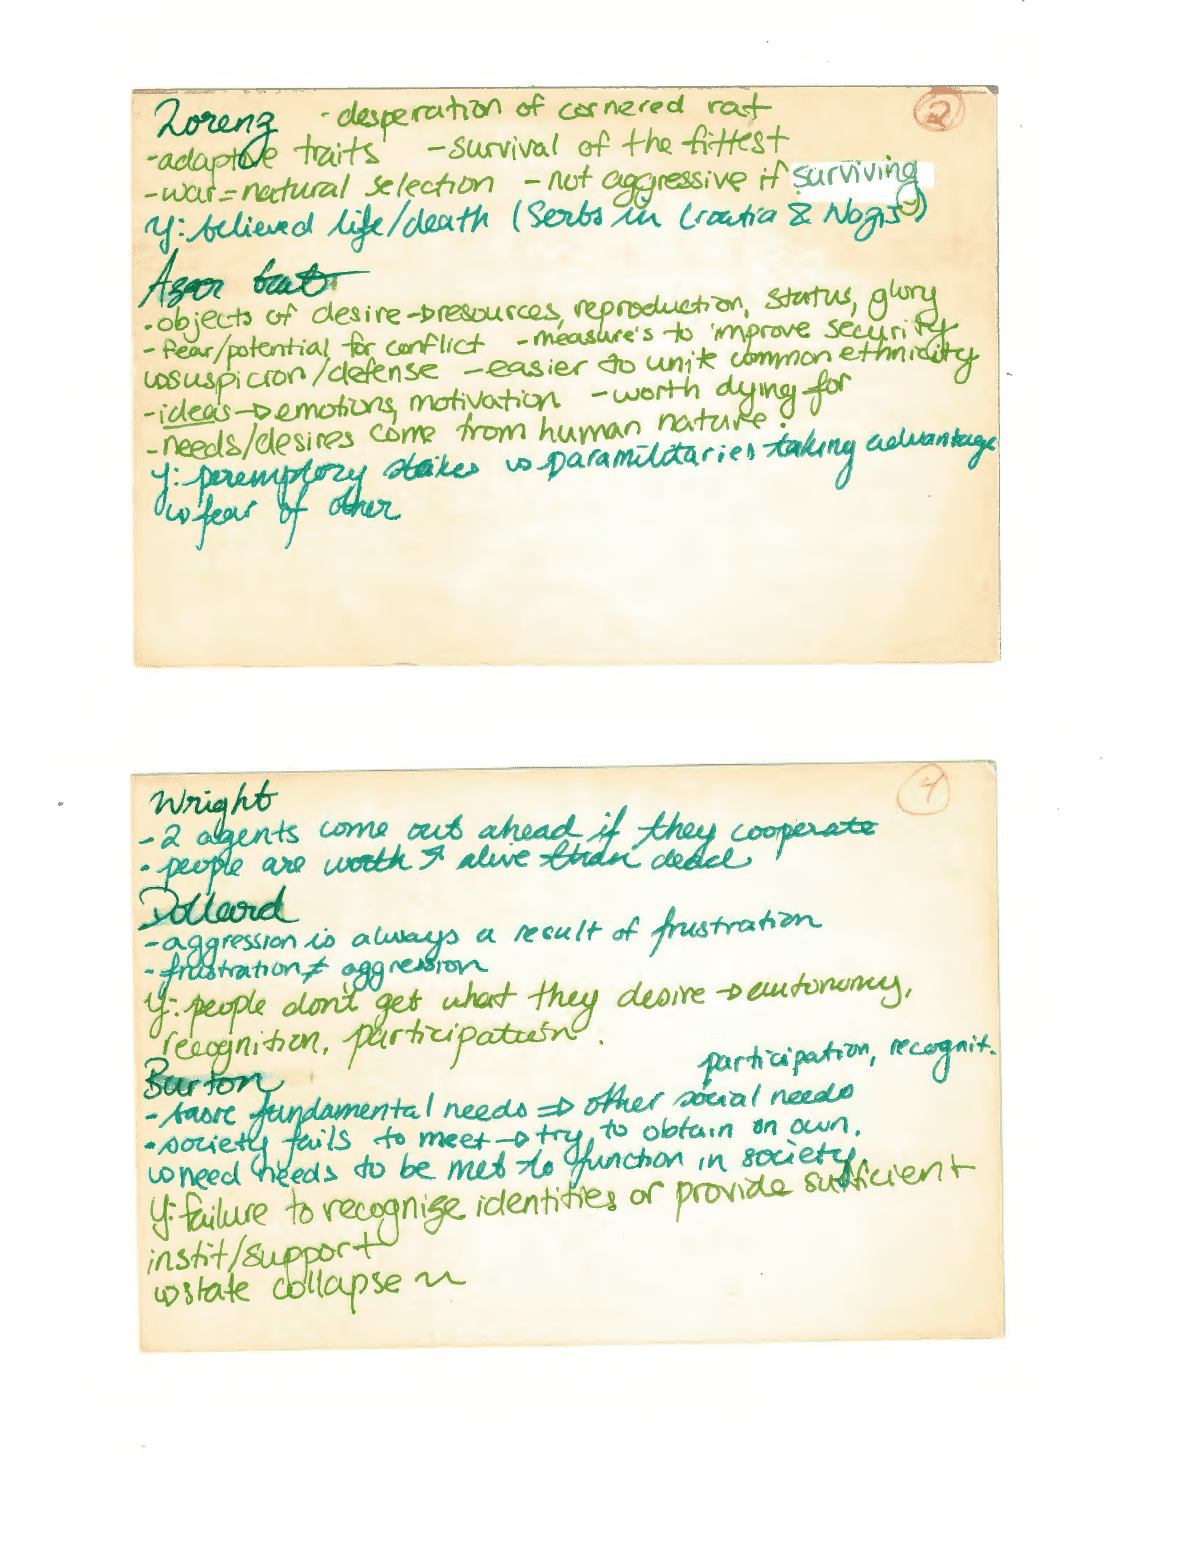 Lorenz - desperation of cornered rat
2
- adaptive traits - survival of the fittest
- war = natural selection - not aggressive if surviving
Y: believed life/death (Serbs in Croatia & Nbgrs)
Azar Gat
- objects of desire → resources, reproduction, status, glory
- fear/potential for conflict - measure's to improve security
↳ suspicion/defense - easier to unite common ethnicity
- ideas → emotions, motivation - worth dying for
- needs/desires come from human nature.
Y: peremptory strikes ↳ paramilitaries taking advantage
↳ fear of other
Wright
4
- 2 agents come out ahead if they cooperate
- people are worth alive than dead
Dollard
- aggression is always a result of frustration
- frustration ≠ aggression
Y: people don't get what they desire → autonomy,
recognition, participation.
participation, recognit.
Burton
- basic fundamental needs ⇒ other social needs
- society fails to meet → try to obtain on own.
↳ need needs to be met to function in society.
Y: failure to recognize identities or provide sufficient
instit/support
↳ state collapse